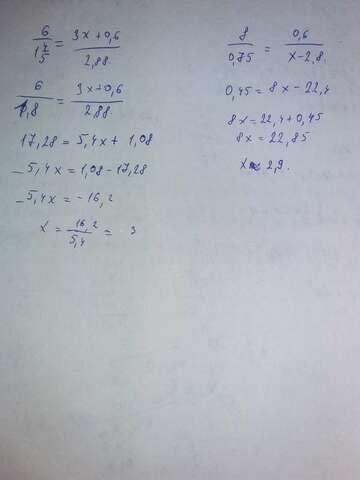 6/1 4/5 = 3x+0,6/2,88.
6/1,8 = 3x+0,6/2,88.
17,28 = 5,4x + 1,08
-5,4x = 1,08 - 17,28
-5,4x = -16,2
x = 16,2/5,4 = 3
8/0,75 = 0,6/x-2,8.
0,45 = 8x - 22,4
8x = 22,4 + 0,45
8x = 22,85
x ≈ 2,9.